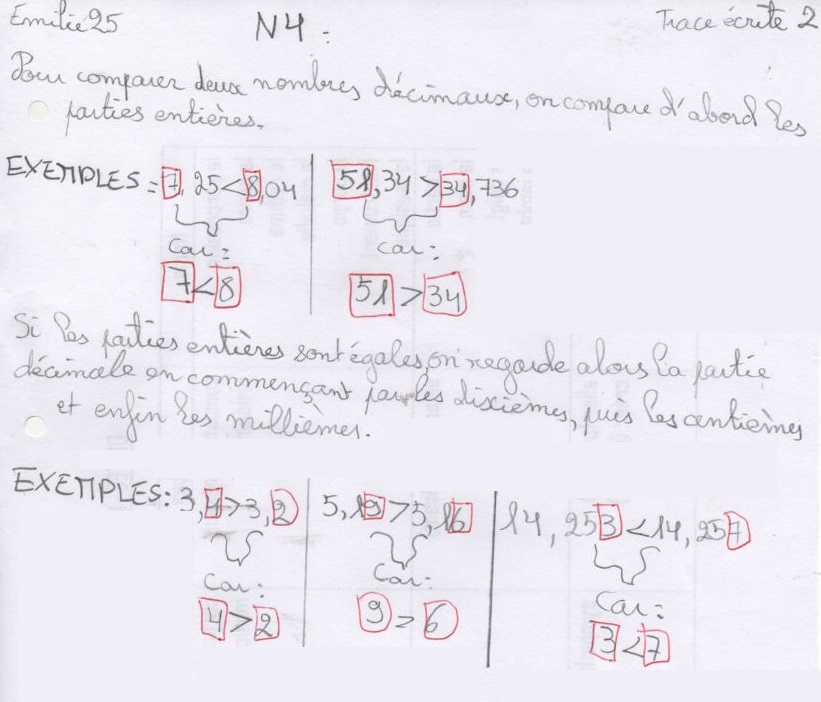 Emilie 25 N4: Trace écrite 2
Pour comparer deux nombres décimaux, on compare d'abord les
parties entières.
EXEMPLES = 7,25 < 8,04 | 51,34 > 34,736
Car: car:
7 < 8 51 > 34
Si les parties entières sont égales, on regarde alors la partie
décimale en commençant par les dixièmes, puis les centièmes
et enfin les millièmes.
EXEMPLES: 3,4 > 3,2 | 5,19 > 5,16 | 14,253 < 14,257
Car: Car: Car:
4 > 2 9 > 6 3 < 7